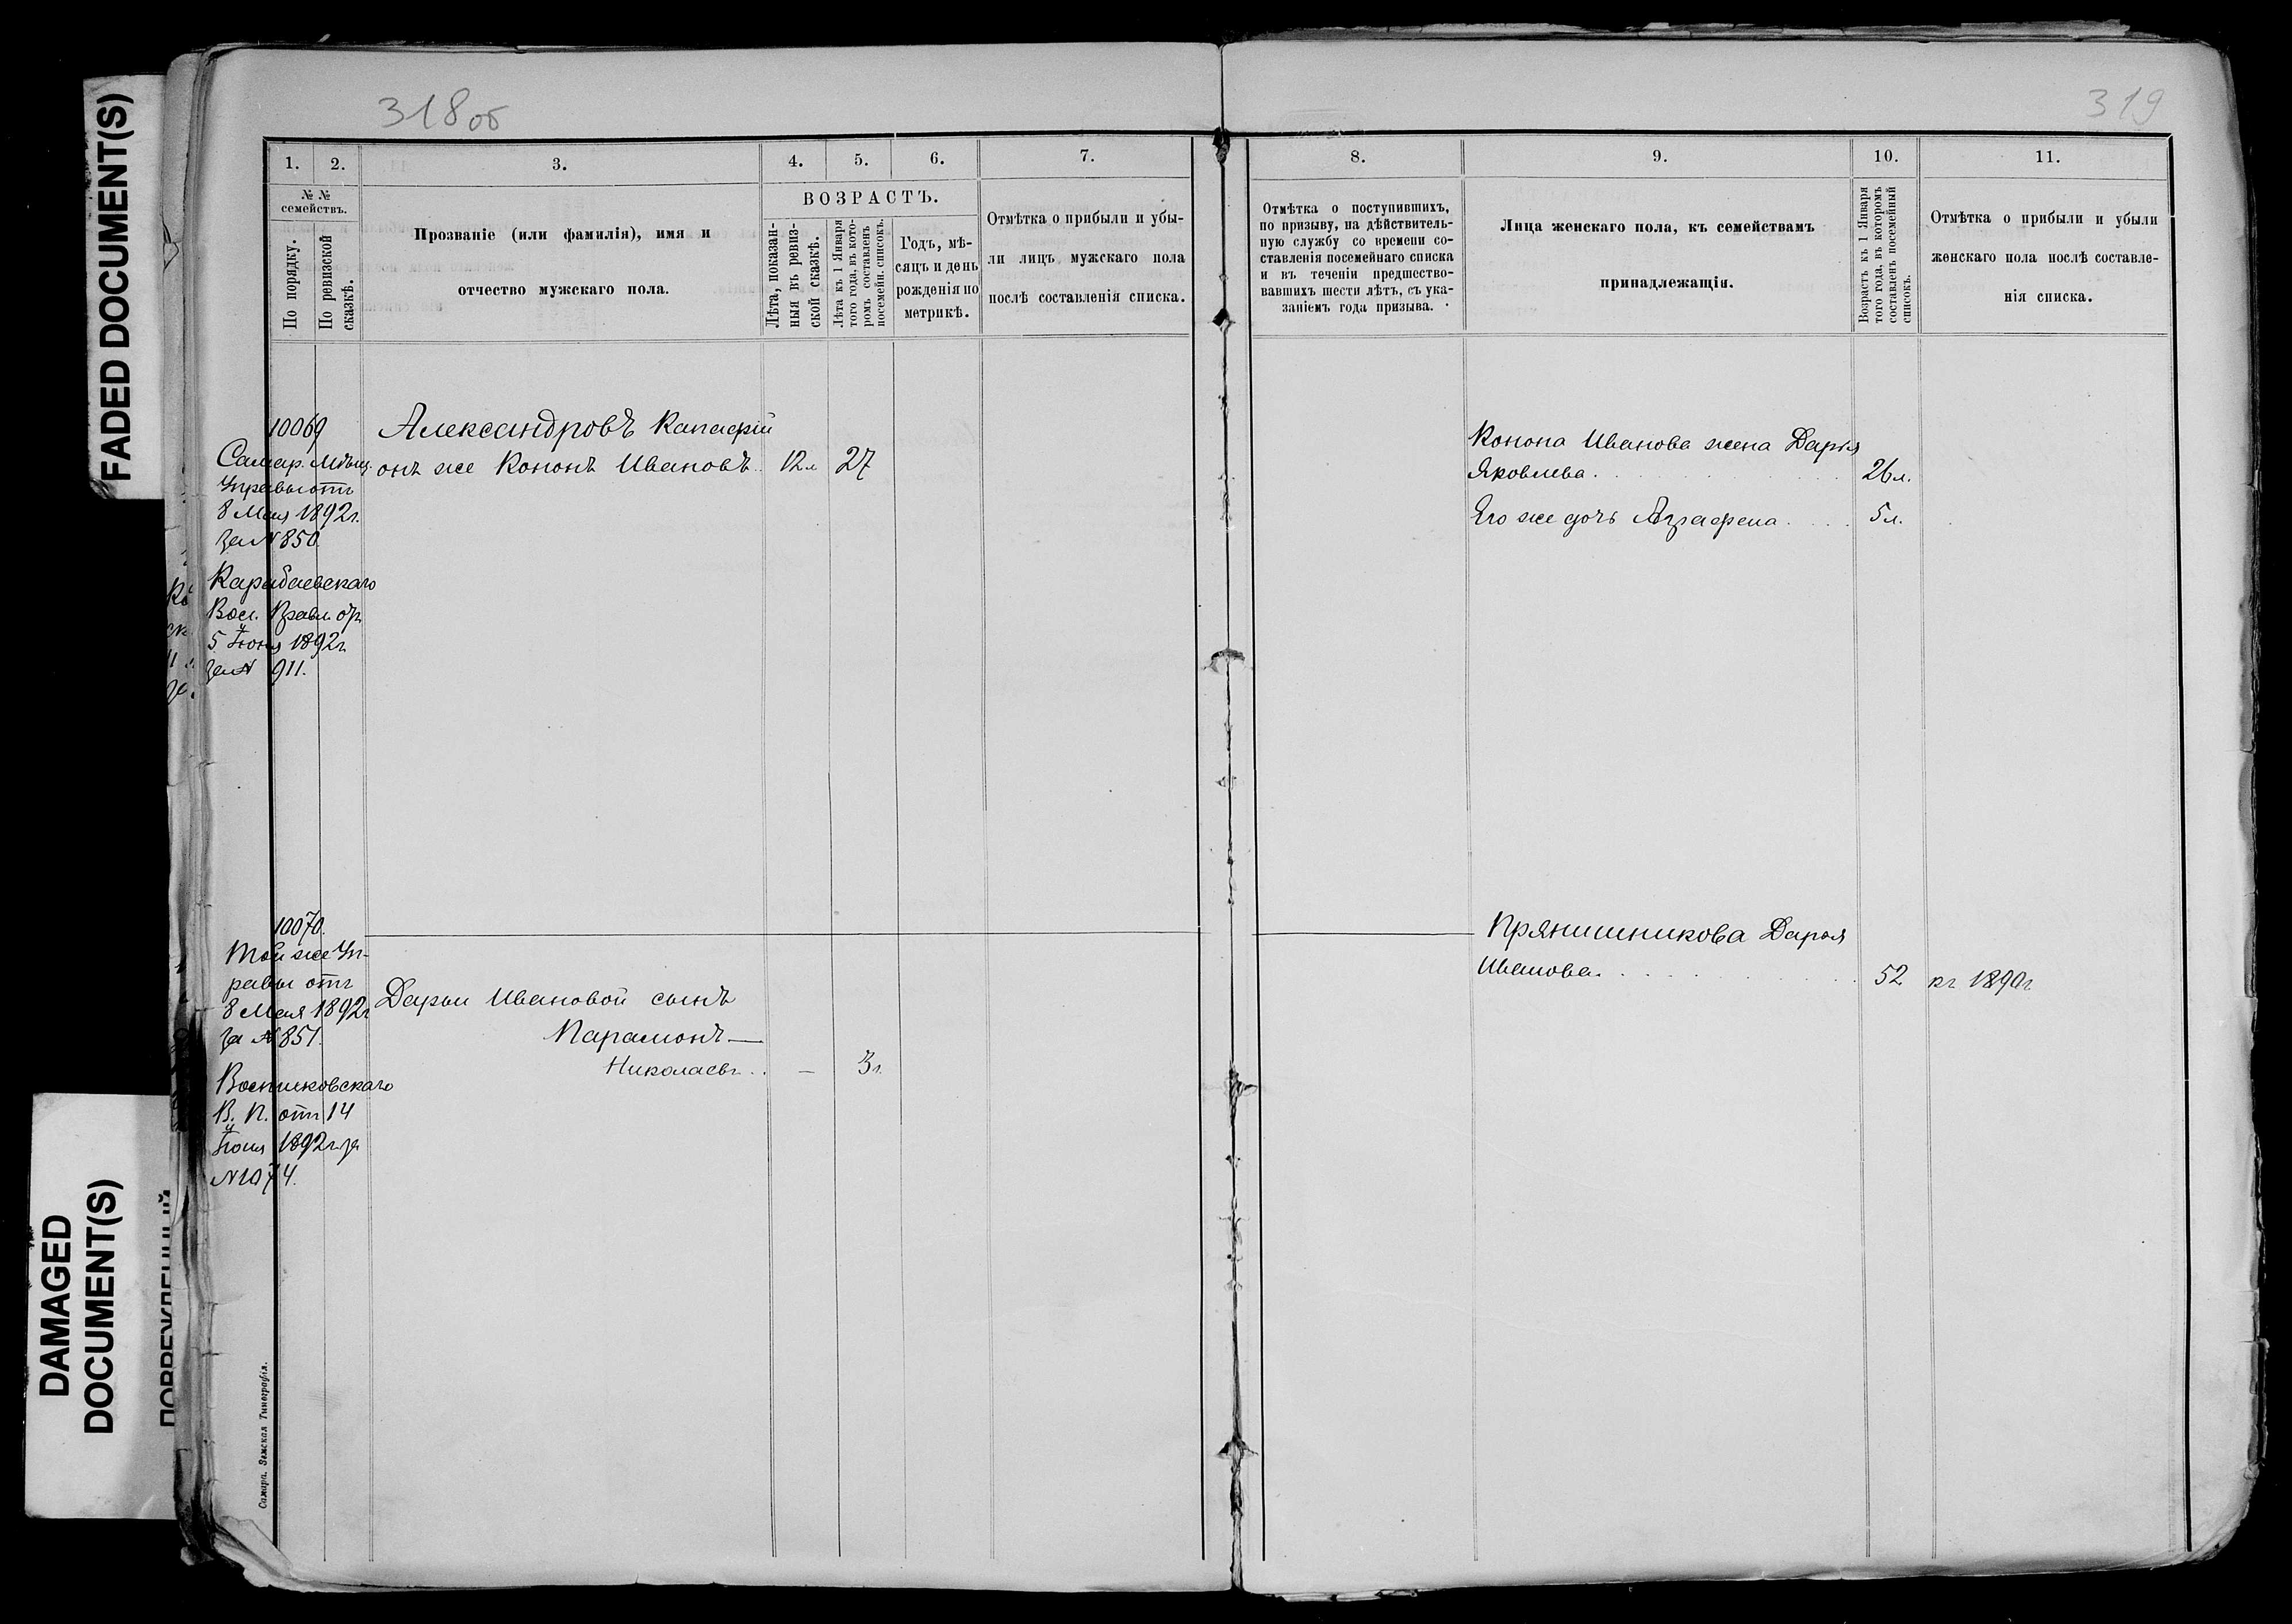 FADED DOCUMENT(S)
DAMAGED
DOCUMENT(S)
318об
1.
2.
3.
4.
5.
6.
7.
№ №
семействъ.
По порядку.
По ревизской
сказкѣ.
Прозваніе (или фамилія), имя и
отчество мужскаго пола.
ВОЗРАСТЪ.
Лѣта, показан-
ныя въ ревиз-
ской сказкѣ.
Лѣта къ 1 Января
того года, въ кото-
ромъ составленъ
посемейн. списокъ.
Годъ, мѣ-
сяцъ и день
рожденія по
метрикѣ.
Отмѣтка о прибыли и убы-
ли лицъ мужскаго пола
послѣ составленія списка.
10069
Самар. Мѣщ.
Управы отъ
8 Мая 1892г.
за № 850
Карабаевскаго
Вол. Правл. отъ
5 Іюня 1892г
за № 911.
Александровъ
онъ же Кононъ Ивановъ.. 12л 27
10070.
Той же Уп-
равы отъ
8 Мая 1892г
за № 851.
В. П. отъ 14
Іюня 1892г за
№ 1074.
Дарьи Ивановой сынъ
Парамонъ —
Николаевъ .. — 3г.
Самара. Земская Типографія.
319
8.
9.
10.
11.
Отмѣтка о поступившихъ,
по призыву, на дѣйствитель-
ную службу со времени со-
ставленія посемейнаго списка
и въ теченіи предшество-
вавшихъ шести лѣтъ, съ ука-
заніемъ года призыва.
Лица женскаго пола, къ семействамъ
принадлежащія.
Возрастъ къ 1 Января
того года, въ которомъ
составленъ посемейный
списокъ.
Отмѣтка о прибыли и убыли
женскаго пола послѣ составле-
нія списка.
Конона Иванова жена Дарья
Яковлева . . . . . 26л.
Его же дочь Аграфена . . . . 5л.
Прянишникова Дарья
Иванова . . . . . 52 къ 1890г